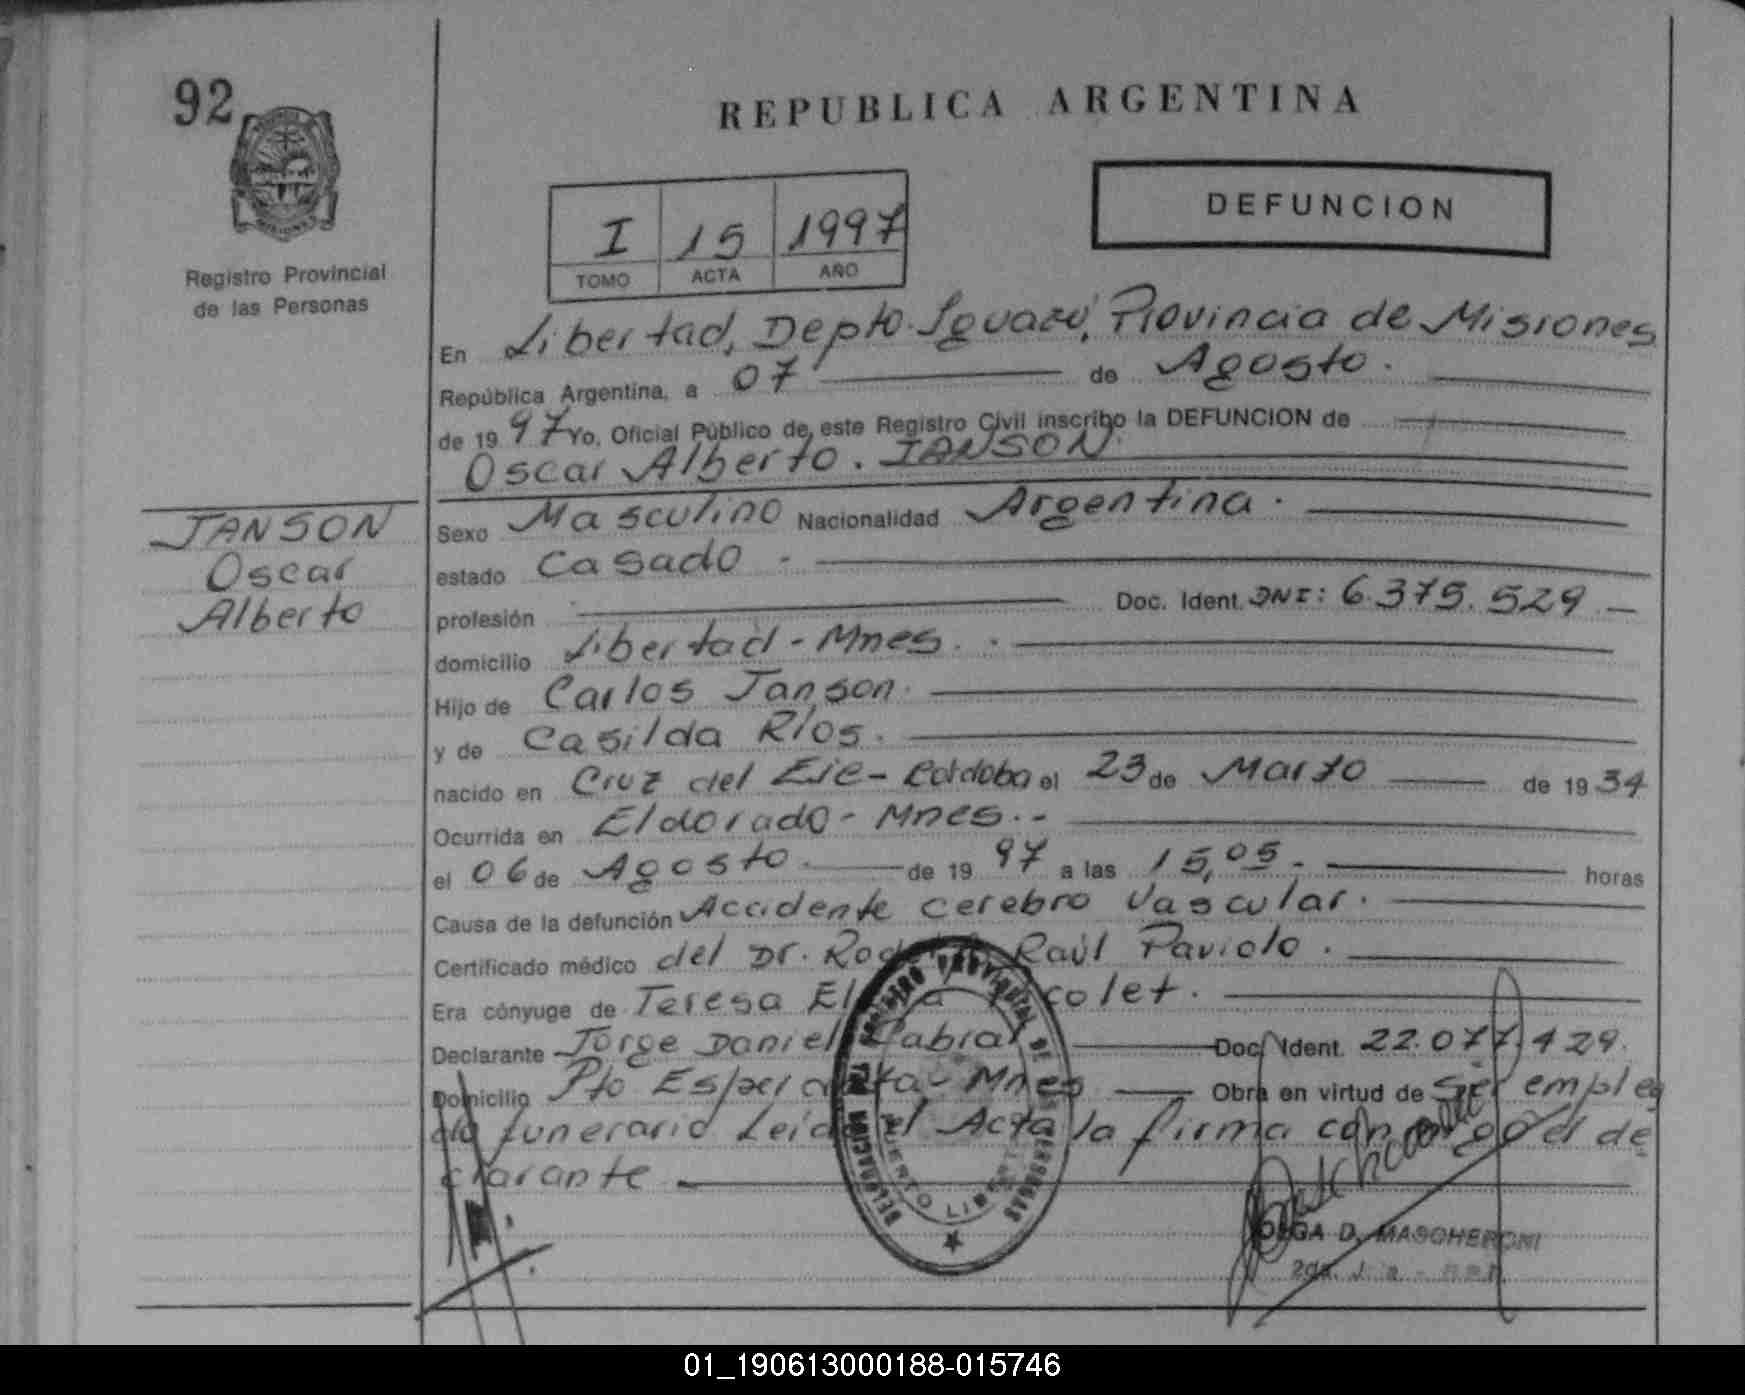 92
REPUBLICA ARGENTINA
I 15 1997
TOMO ACTA AÑO
DEFUNCION
Registro Provincial
de las Personas
En Libertad, Depto. Iguazú, Provincia de Misiones
República Argentina, a 07 de Agosto.
de 1997 Yo, Oficial Público de este Registro Civil inscribo la DEFUNCION de
Oscar Alberto. JANSON.
JANSON
Oscar
Alberto
Sexo Masculino Nacionalidad Argentina.
estado Casado.
profesión Doc. Ident. DNI: 6.375.529
domicilio Libertad - Mnes.
Hijo de Carlos Janson.
y de Casilda Ríos.
nacido en Cruz del Eje - Córdoba el 23 de Marzo de 1934
Ocurrida en Eldorado - Mnes.
el 06 de Agosto. de 1997 a las 15,05. horas
Causa de la defunción Accidente cerebro Vascular.
Certificado médico del Dr. Raúl Paviolo.
Era cónyuge de Teresa
Declarante Jorge Daniel Cabral Doc. Ident. 22.077.429.
Domicilio Pto Esperanza - Mnes Obra en virtud de ser emplea
do funerario Leída el Acta la firma con
clarante
REGISTRO PROVINCIAL DE LAS PERSONAS
DELEGACION
PUERTO LIBERTAD
OLGA D. MASCHERONI
01_190613000188-015746